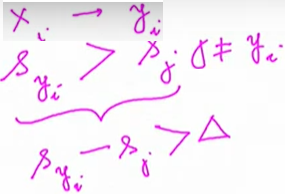 x_i → y_i
s_{y_i} > s_j j ≠ y_i
s_{y_i} - s_j > Δ